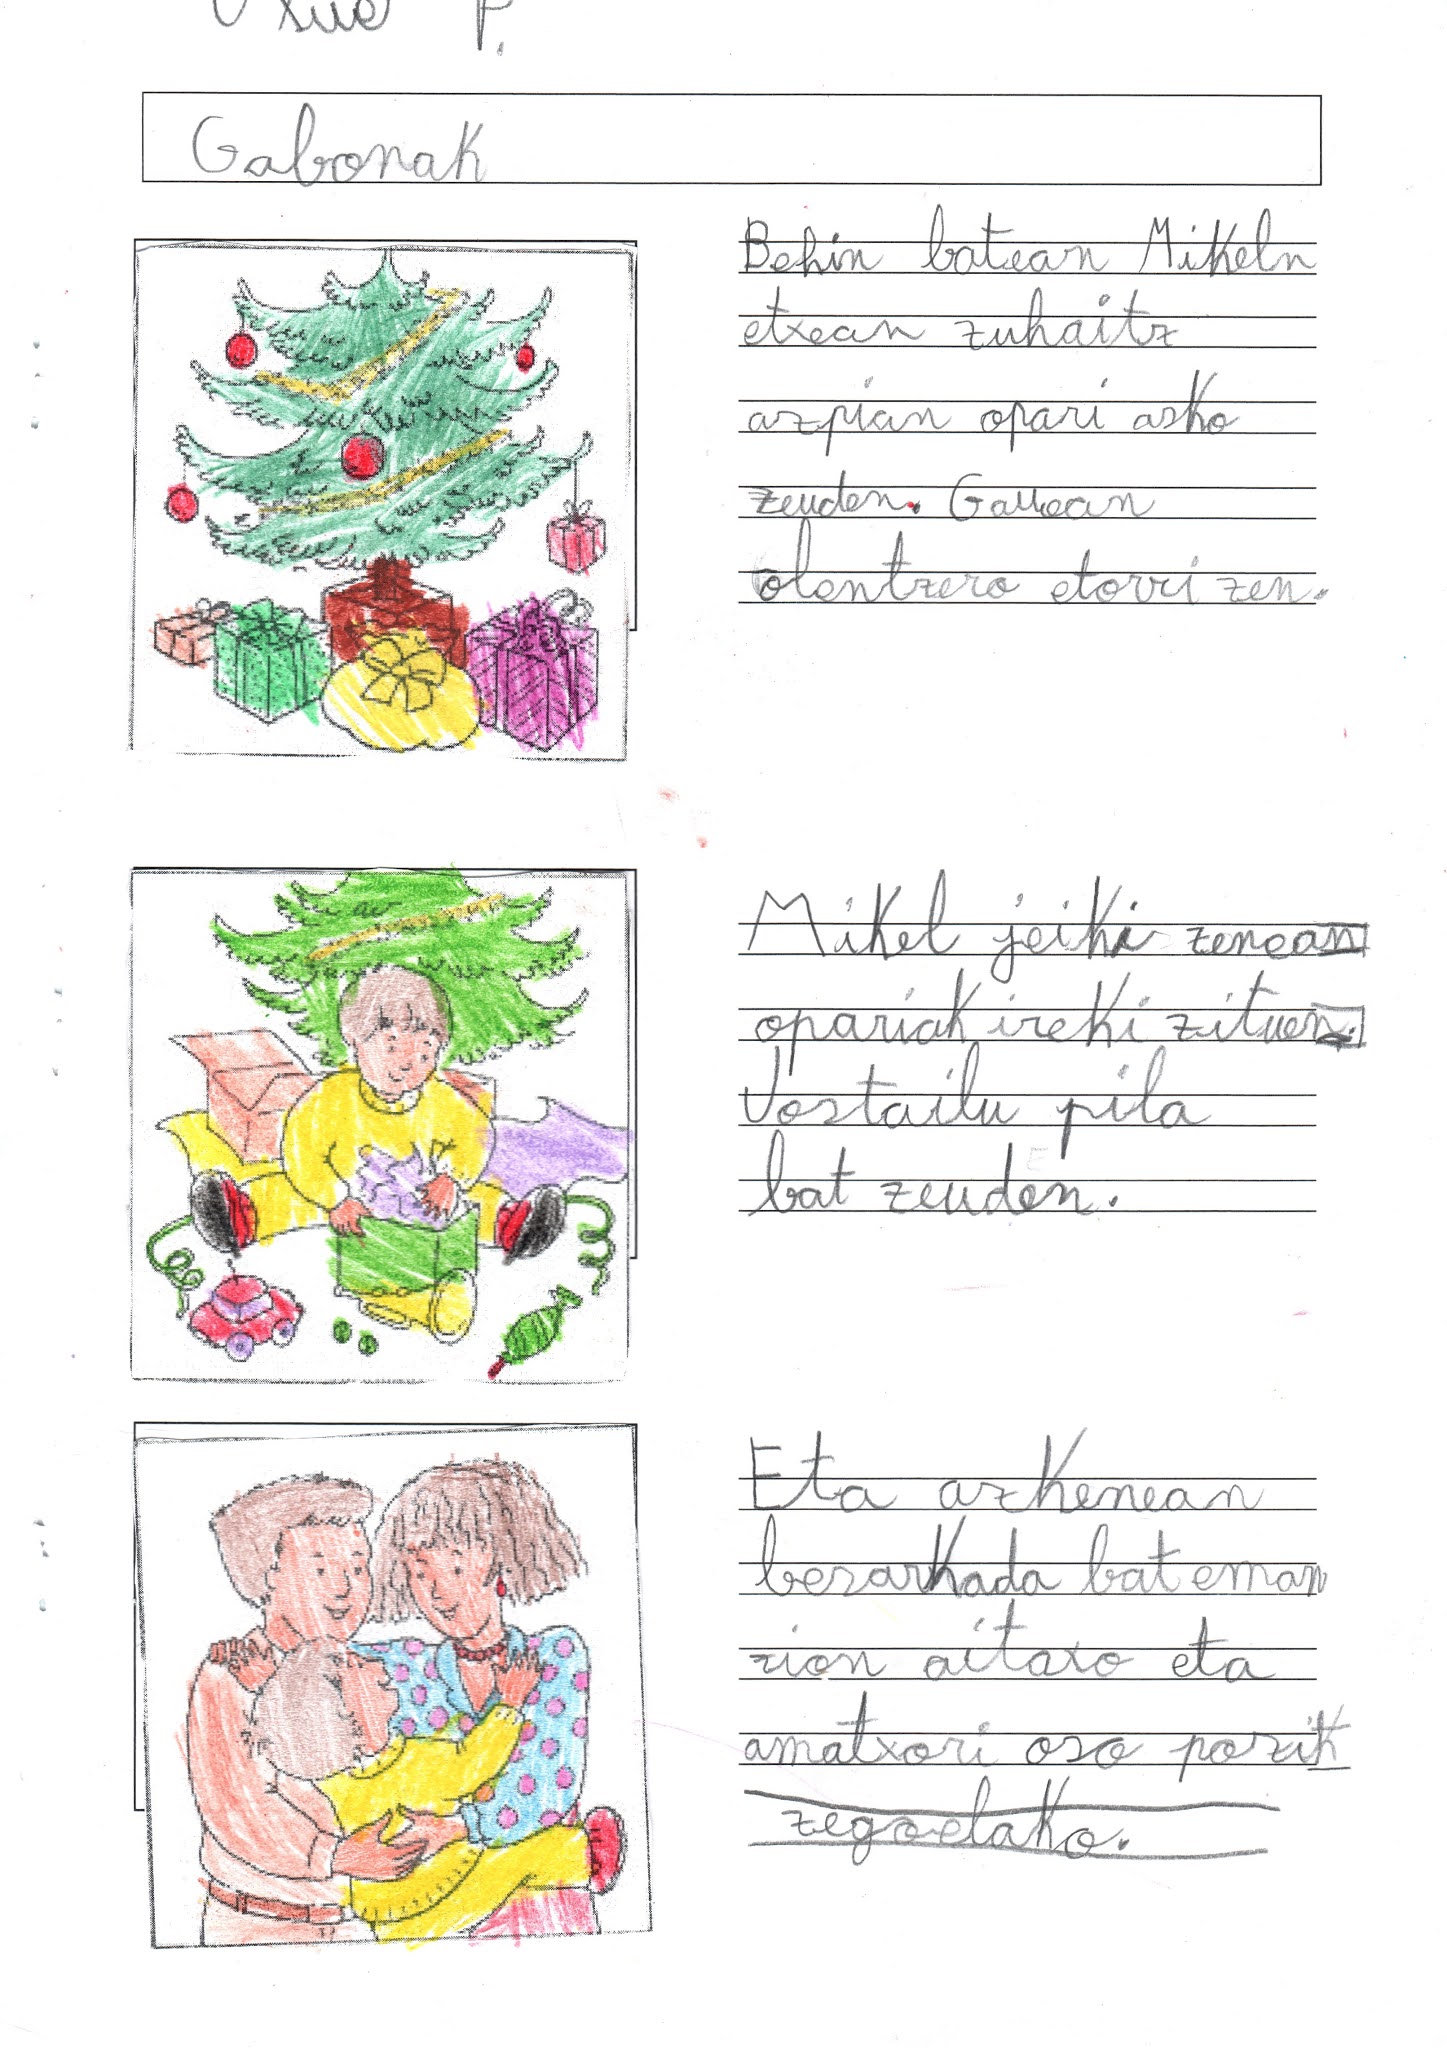 P.
Gabonak
Behin batean Mikeln
etxean zuhaitz
azpian opari asko
zeuden. Gauean
olentzero etorri zen.
Mikel jeiki zenean
opariak ireki zituen.
Jostailu pila
bat zeuden.
Eta azkenean
besarkada bat eman
zion aitaxo eta
amatxori oso pozik
zegoelako.